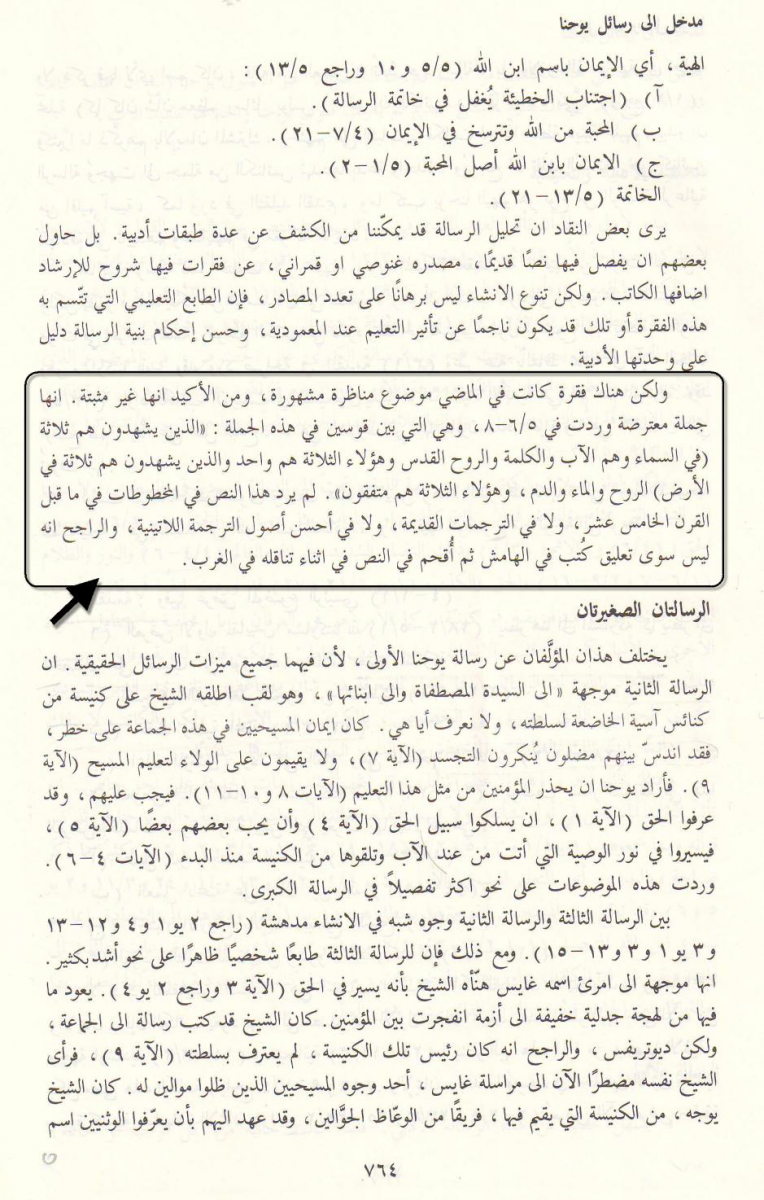 مدخل الى رسائل يوحنا
الهية ، أي الإيمان باسم ابن الله (٥/٥ و١٠ وراجع ١٣/٥) :
آ) (اجتناب الخطيئة يُغفل في خاتمة الرسالة).
ب) المحبة من الله وتترسخ في الإيمان (٧/٤–٢١).
ج) الايمان بابن الله أصل المحبة (١/٥–٢).
الخاتمة (١٣/٥–٢١).
يرى بعض النقاد ان تحليل الرسالة قد يمكّننا من الكشف عن عدة طبقات أدبية. بل حاول
بعضهم ان يفصل فيها نصًا قديمًا ، مصدره غنوصي او قمراني ، عن فقرات فيها شروح للإرشاد
اضافها الكاتب. ولكن تنوع الانشاء ليس برهانًا على تعدد المصادر ، فإن الطابع التعليمي التي تتّسم به
هذه الفقرة أو تلك قد يكون ناجمًا عن تأثير التعليم عند المعمودية ، وحسن إحكام بنية الرسالة دليل
على وحدتها الأدبية.
ولكن هناك فقرة كانت في الماضي موضوع مناظرة مشهورة ، ومن الأكيد انها غير مثبتة. انها
جملة معترضة وردت في ٦/٥–٨ ، وهي التي بين قوسين في هذه الجملة : «الذين يشهدون هم ثلاثة
(في السماء وهم الآب والكلمة والروح القدس وهؤلاء الثلاثة هم واحد والذين يشهدون هم ثلاثة في
الأرض) الروح والماء والدم ، وهؤلاء الثلاثة هم متفقون». لم يرد هذا النص في المخطوطات في ما قبل
القرن الخامس عشر ، ولا في الترجمات القديمة ، ولا في أحسن أصول الترجمة اللاتينية ، والراجح انه
ليس سوى تعليق كُتب في الهامش ثم أُقحم في النص في اثناء تناقله في الغرب.
الرسالتان الصغيرتان
يختلف هذان المؤلَّفان عن رسالة يوحنا الأولى ، لأن فيهما جميع ميزات الرسائل الحقيقية. ان
الرسالة الثانية موجهة «الى السيدة المصطفاة والى ابنائها» ، وهو لقب اطلقه الشيخ على كنيسة من
كنائس آسية الخاضعة لسلطته ، ولا نعرف أيا هي. كان ايمان المسيحيين في هذه الجماعة على خطر ،
فقد اندسّ بينهم مضلون يُنكرون التجسد (الآية ٧) ، ولا يقيمون على الولاء لتعليم المسيح (الآية
٩). فأراد يوحنا ان يحذر المؤمنين من مثل هذا التعليم (الآيات ٨ و١٠–١١). فيجب عليهم ، وقد
عرفوا الحق (الآية ١) ، ان يسلكوا سبيل الحق (الآية ٤) وأن يحب بعضهم بعضًا (الآية ٥) ،
فيسيروا في نور الوصية التي أتت من عند الآب وتلقوها من الكنيسة منذ البدء (الآيات ٤–٦).
وردت هذه الموضوعات على نحو اكثر تفصيلاً في الرسالة الكبرى.
بين الرسالة الثالثة والرسالة الثانية وجوه شبه في الانشاء مدهشة (راجع ٢ يو ١ و٤ و١٢–١٣
و٣ يو ١ و٣ و١٣–١٥). ومع ذلك فإن للرسالة الثالثة طابعًا شخصيًا ظاهرًا على نحو أشد بكثير.
انها موجهة الى امرئ اسمه غايس هنّأه الشيخ بأنه يسير في الحق (الآية ٣ وراجع ٢ يو ٤). يعود ما
فيها من لهجة جدلية خفيفة الى أزمة انفجرت بين المؤمنين. كان الشيخ قد كتب رسالة الى الجماعة ،
ولكن ديوتريفس ، والراجح انه كان رئيس تلك الكنيسة ، لم يعترف بسلطته (الآية ٩) ، فرأى
الشيخ نفسه مضطرًا الآن الى مراسلة غايس ، أحد وجوه المسيحيين الذين ظلوا موالين له. كان الشيخ
يوجه ، من الكنيسة التي يقيم فيها ، فريقًا من الوعّاظ الجوّالين ، وقد عهد اليهم بأن يعرّفوا الوثنيين اسم
٧٦٤